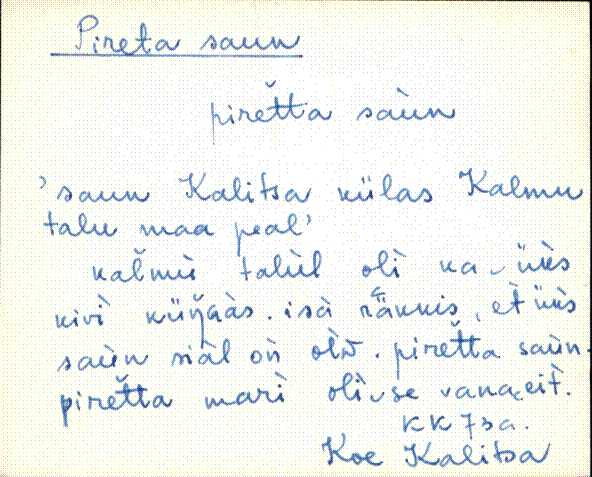 Pireta saun
pireťta saùn
'saun Kalitsa külas Kalmu
talu maa peal'
kaľmù talùl olì ka‿ǜks
kivì küŋ̀gàs. isà rääkkis, et̀ ǜks
saùn siàl oǹ olǹd. pireťta saùn.
pireťta marì olì‿se vana‿eit̀.
KK 7sa.
Koe Kalitsa